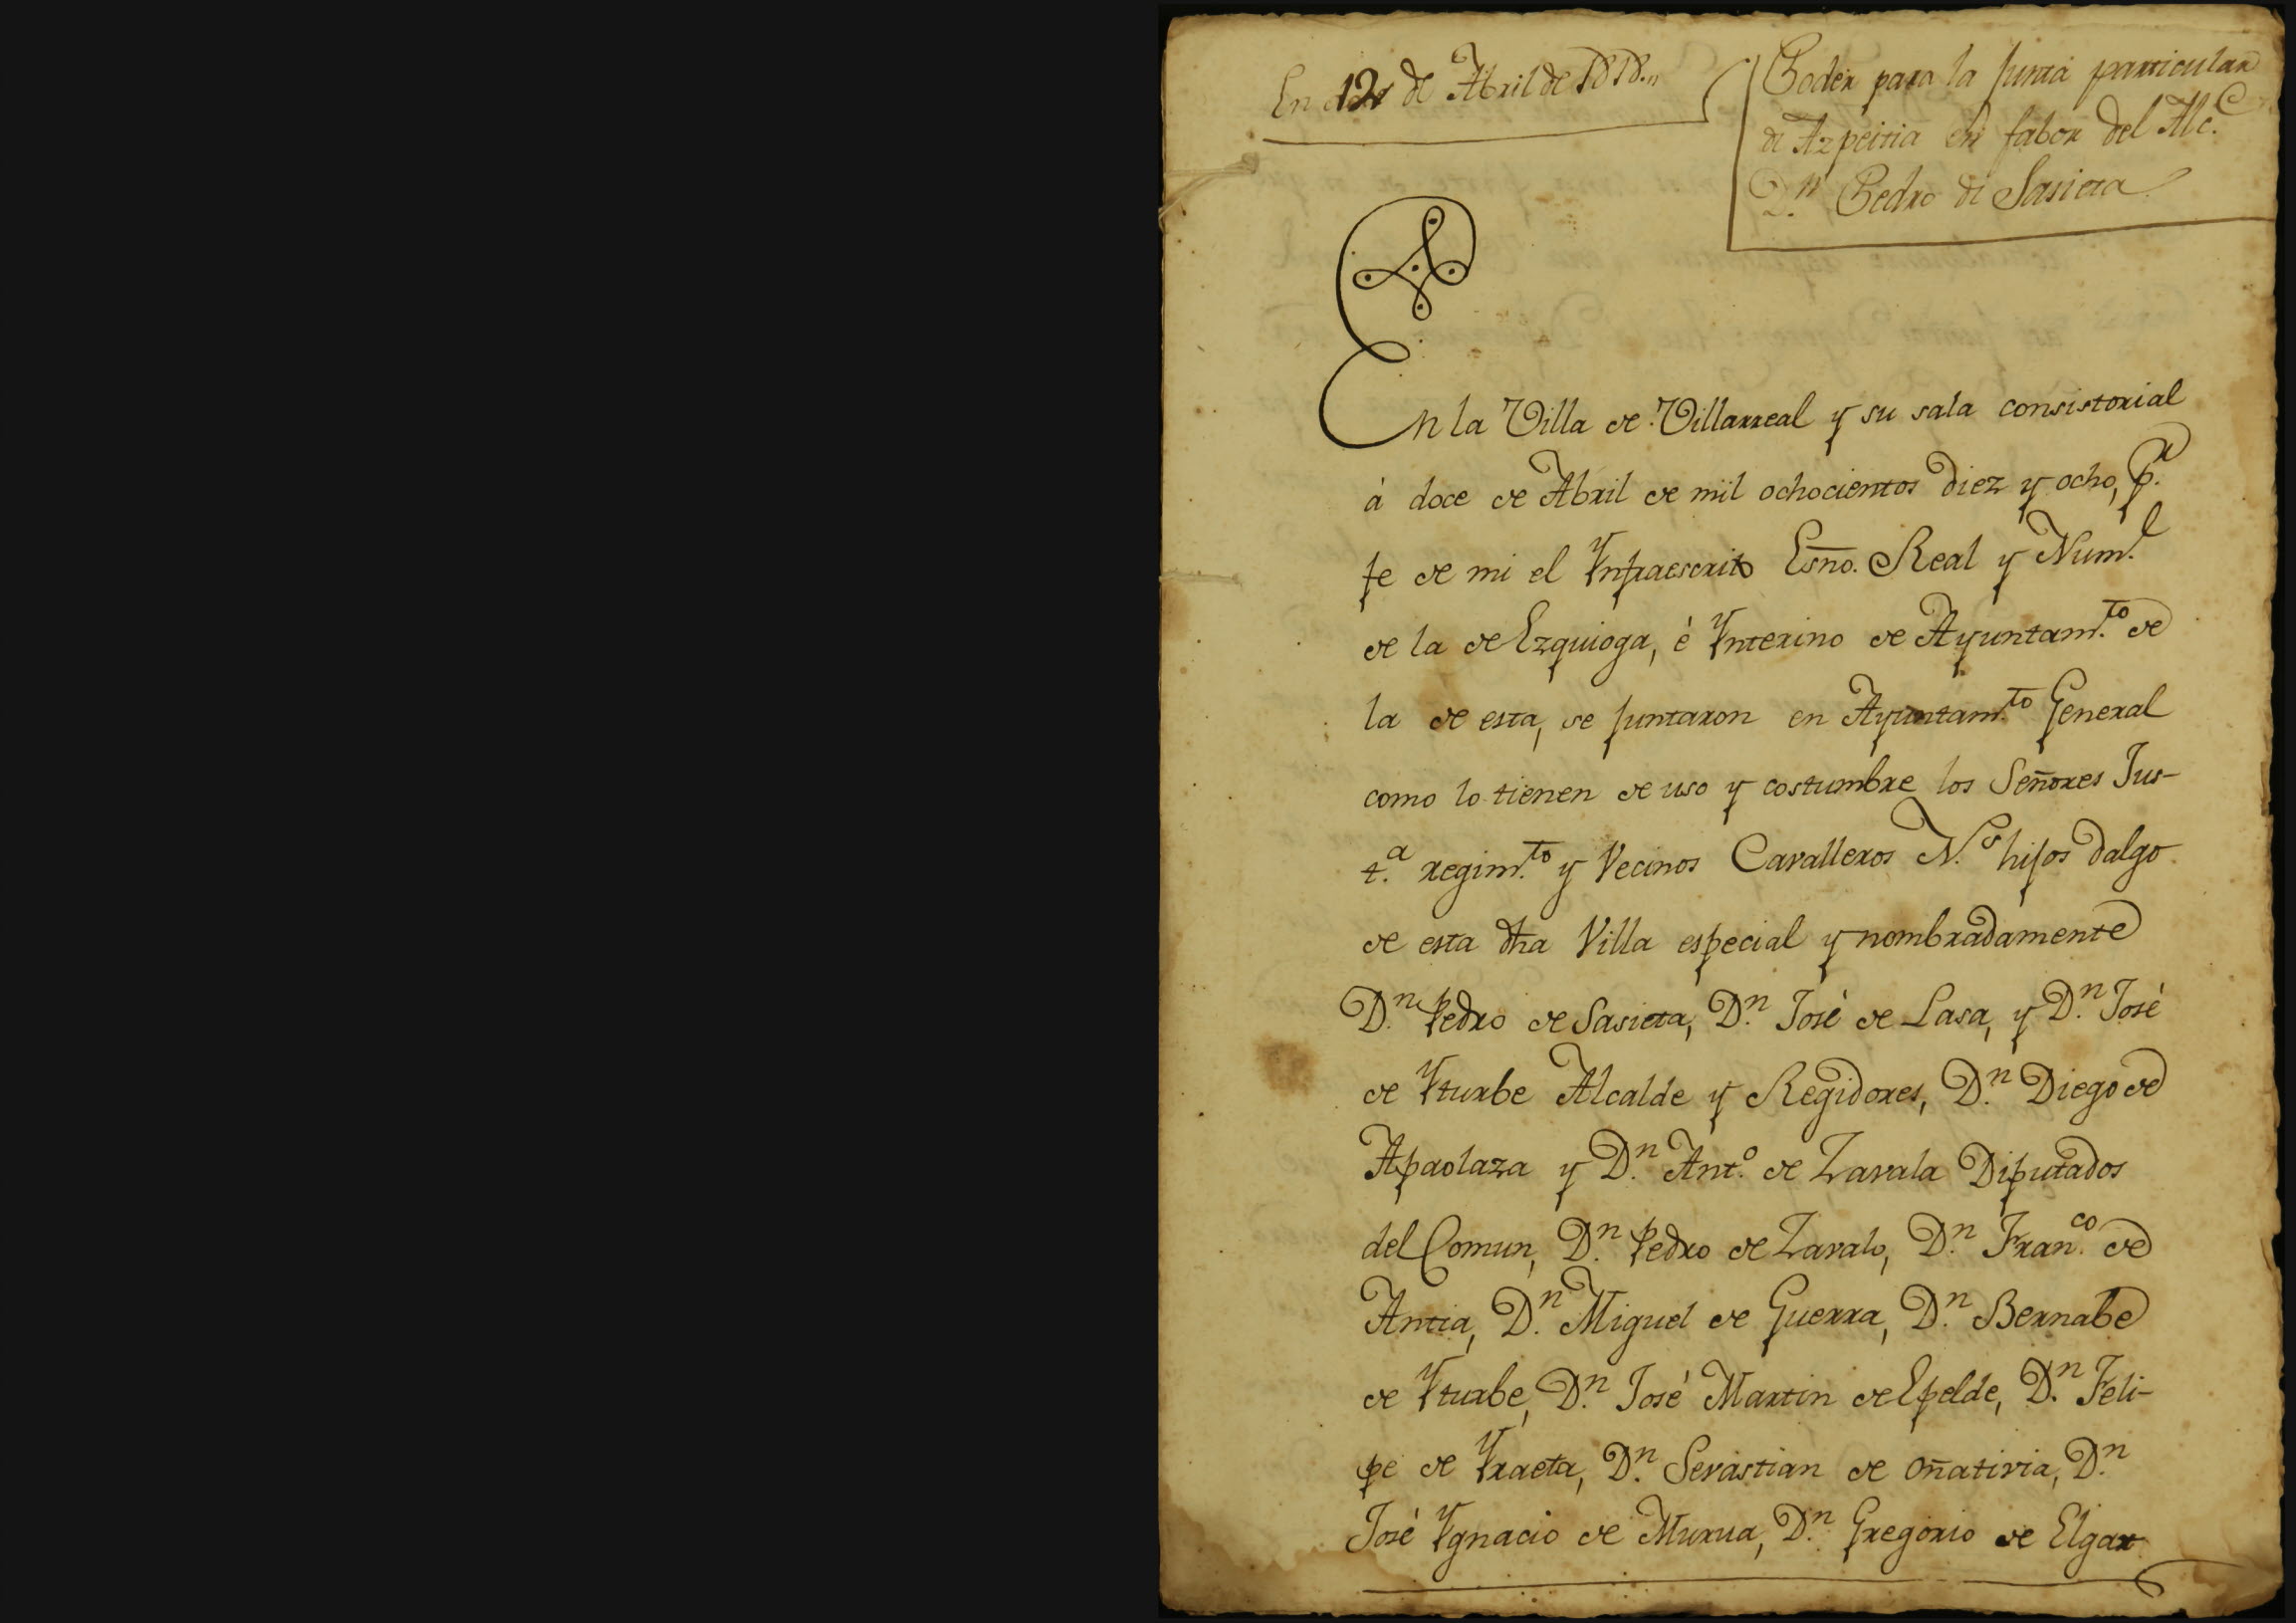 En 12 de Abril de 1818.,,
Poder para la Junta particular
de Azpeitia en fabor del Alc.e
D.n Pedro de Sasieta
En la Villa de Villarreal y su sala consistorial
à doce de Abril de mil ochocientos diez y ocho, p.r
fe de mi el Ynfraescrito Esño. Real y Num.l
de la de Ezquioga, è Ynterino de Ayuntam.to de
la de esta, se juntaron en Ayuntam.to General
como lo tienen de uso y costumbre los Señores Jus-
t.a regim.to y Vecinos Cavalleros N.s hijos dalgo
de esta dha Villa especial y nombradamente
D.n Pedro de Sasieta, D.n José de Lasa, y D.n José
de Yturbe Alcalde y Regidores, D.n Diego de
Apaolaza y D.n Ant.o de Zavala Diputados
del Comun, D.n Pedro de Zavalo, D.n Fran.co de
Antia, D.n Miguel de Guerra, D.n Bernabe
de Yturbe, D.n José Martin de Epelde, D.n Feli-
pe de Yraeta, D.n Sevastian de Oñativia, D.n
José Ygnacio de Murua, D.n Gregorio de Elgar